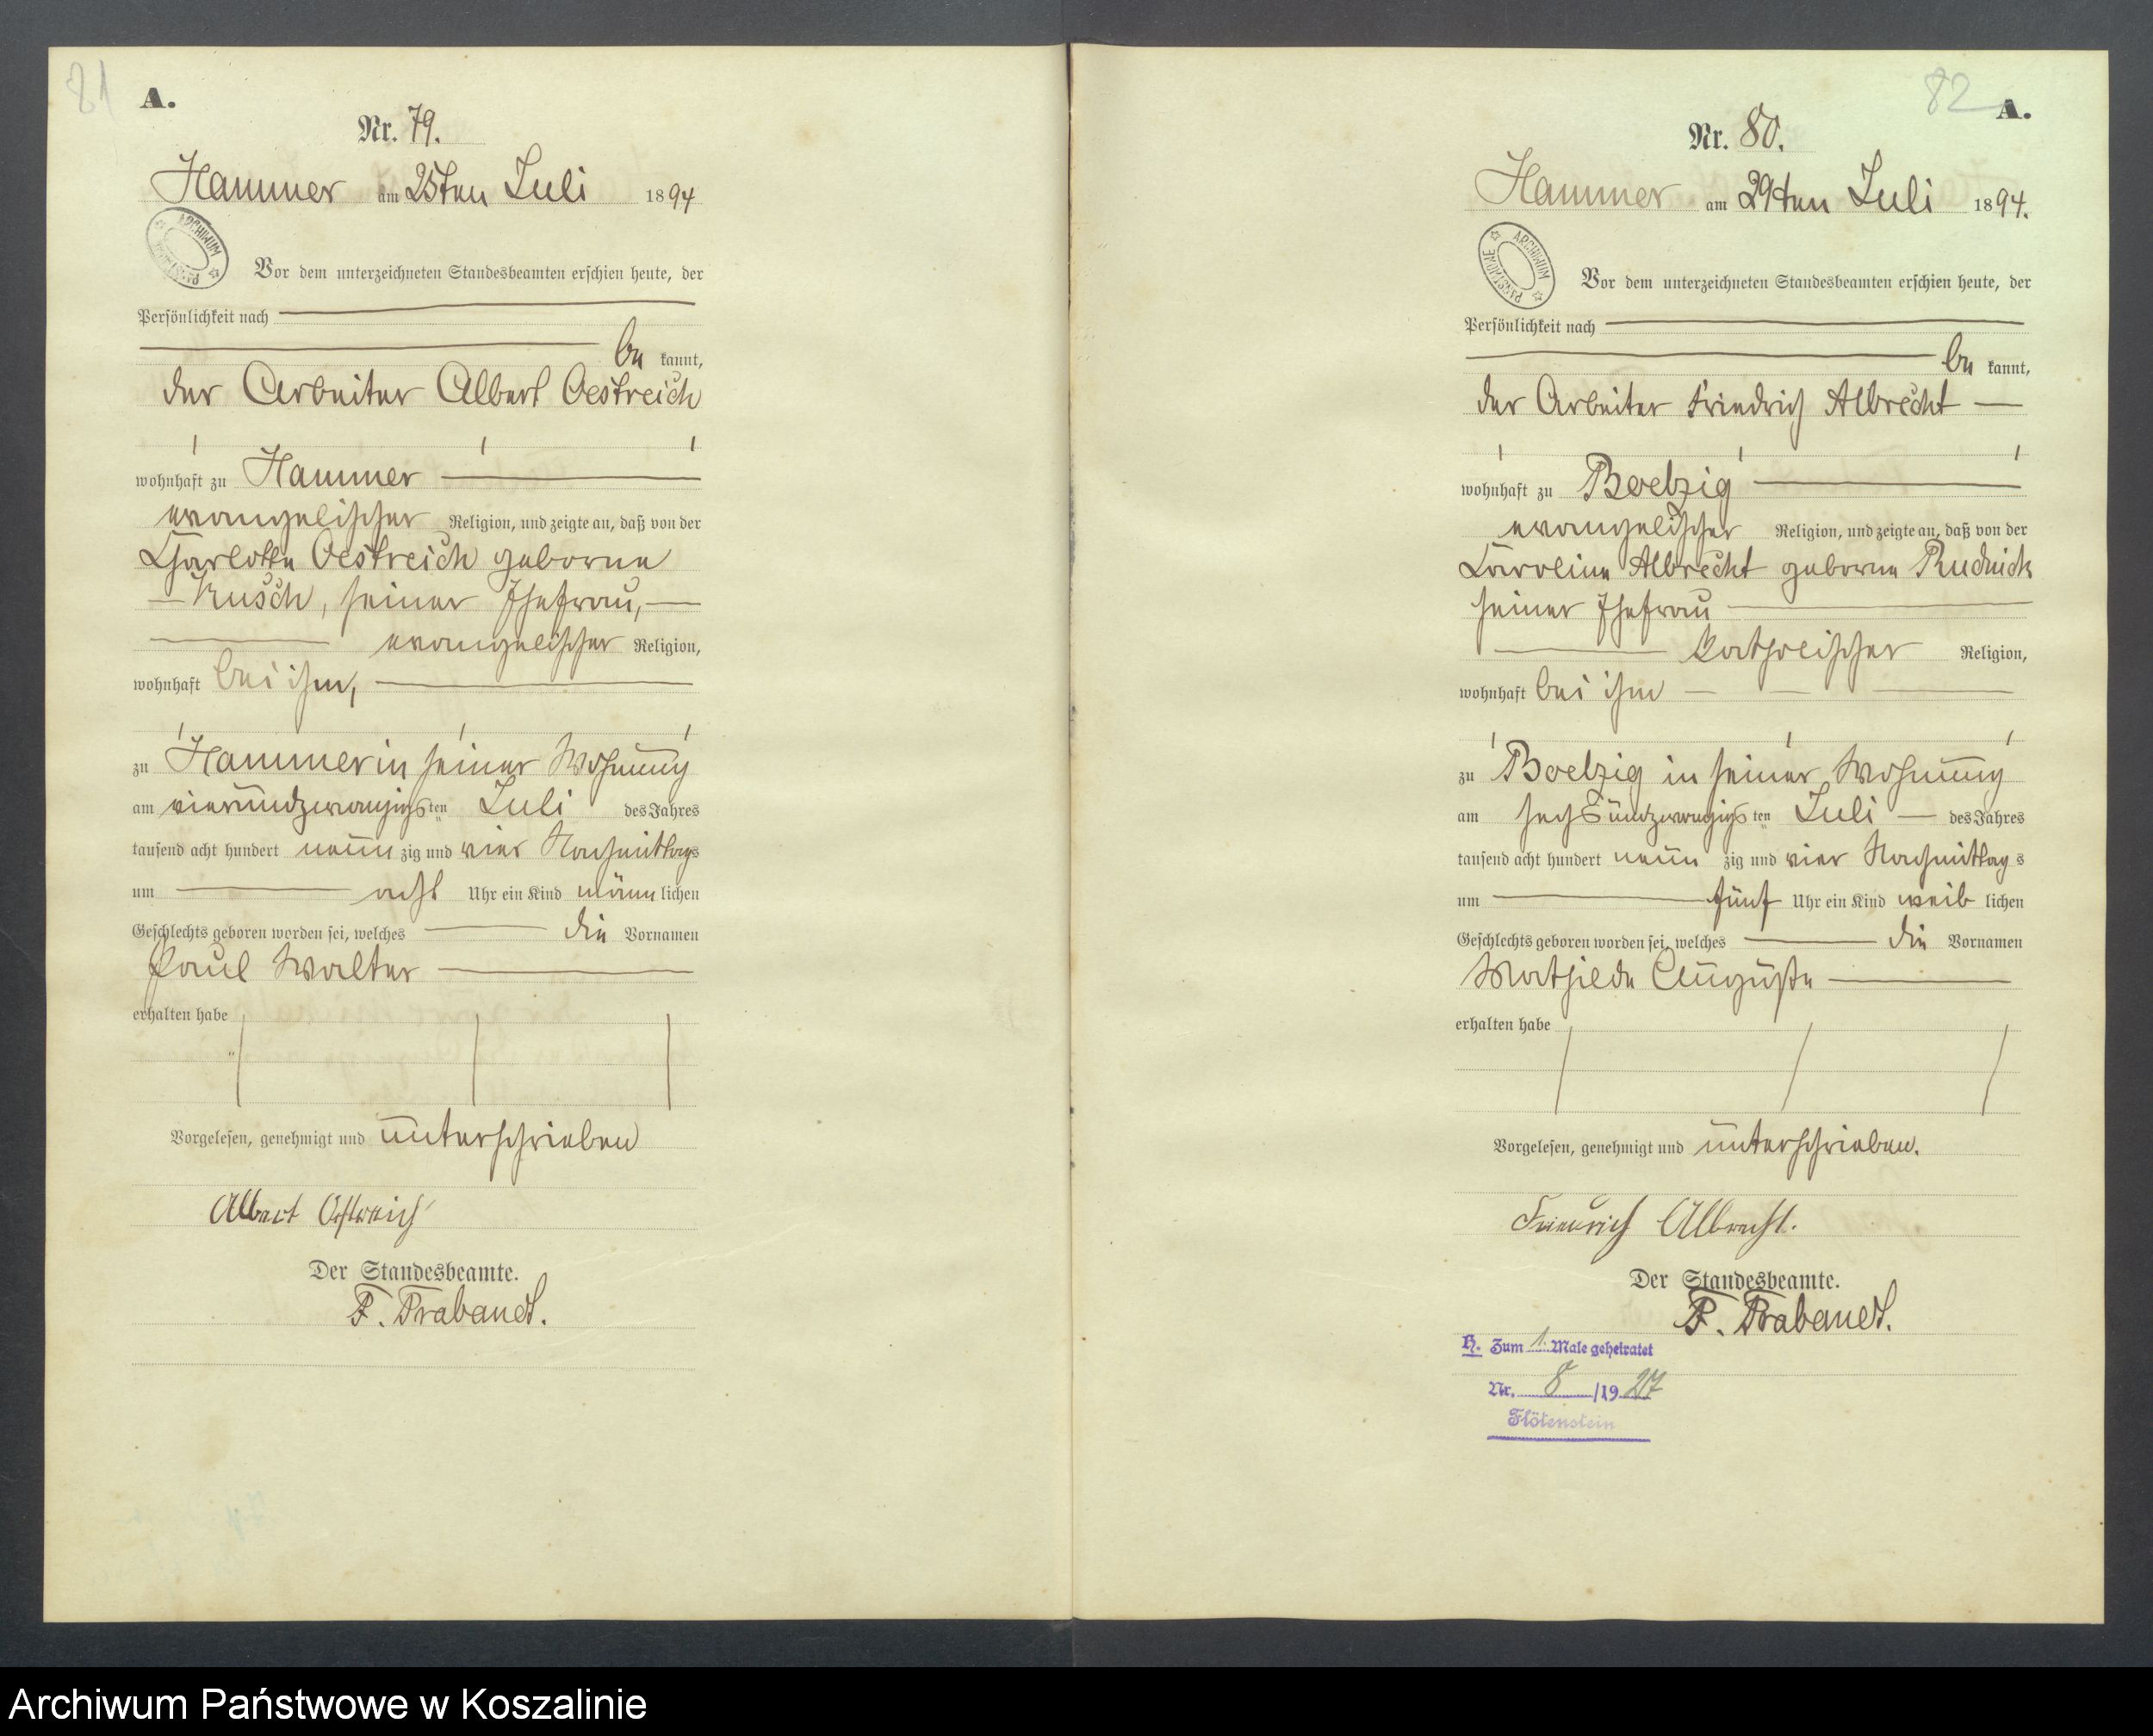 81
A.
Nr. 79.
Hammer am 25ten Juli 1894
ARCHIWUM PAŃSTWOWE
Vor dem unterzeichneten Standesbeamten erschien heute, der
Persönlichkeit nach
be kannt,
der Arbeiter Albert Oestreich
wohnhaft zu Hammer
evangelischer Religion, und zeigte an, daß von der
Charlotte Oestreich geborne
Kusch, seiner Ehefrau,
evangelischer Religion,
wohnhaft bei ihm,
zu Hammer in seiner Wohnung
am vierundzwanzigsten Juli des Jahres
tausend acht hundert neun zig und vier Nachmittags
um acht Uhr ein Kind männ lichen
Geschlechts geboren worden sei, welches die Vornamen
Paul Walter
erhalten habe
Vorgelesen, genehmigt und unterschrieben
Albert Oestreich
Der Standesbeamte.
F. Brabandt.
82
A.
Nr. 80.
Hammer am 29ten Juli 1894.
ARCHIWUM PAŃSTWOWE
Vor dem unterzeichneten Standesbeamten erschien heute, der
Persönlichkeit nach
be kannt,
der Arbeiter Friedrich Albrecht
wohnhaft zu Boelzig
evangelischer Religion, und zeigte an, daß von der
Caroline Albrecht geborne Rudnick
seiner Ehefrau
katholischer Religion,
wohnhaft bei ihm
zu Boelzig in seiner Wohnung
am sechsundzwanzigs ten Juli des Jahres
tausend acht hundert neun zig und vier Nachmittag s
um fünf Uhr ein Kind weib lichen
Geschlechts geboren worden sei, welches die Vornamen
Mathilde Auguste
erhalten habe
Vorgelesen, genehmigt und unterschrieben.
Friedrich Albrecht.
Der Standesbeamte.
F. Brabandt.
H. Zum 1. Male geheiratet
Nr. 8 /19 27
Flötenstein
Archiwum Państwowe w Koszalinie